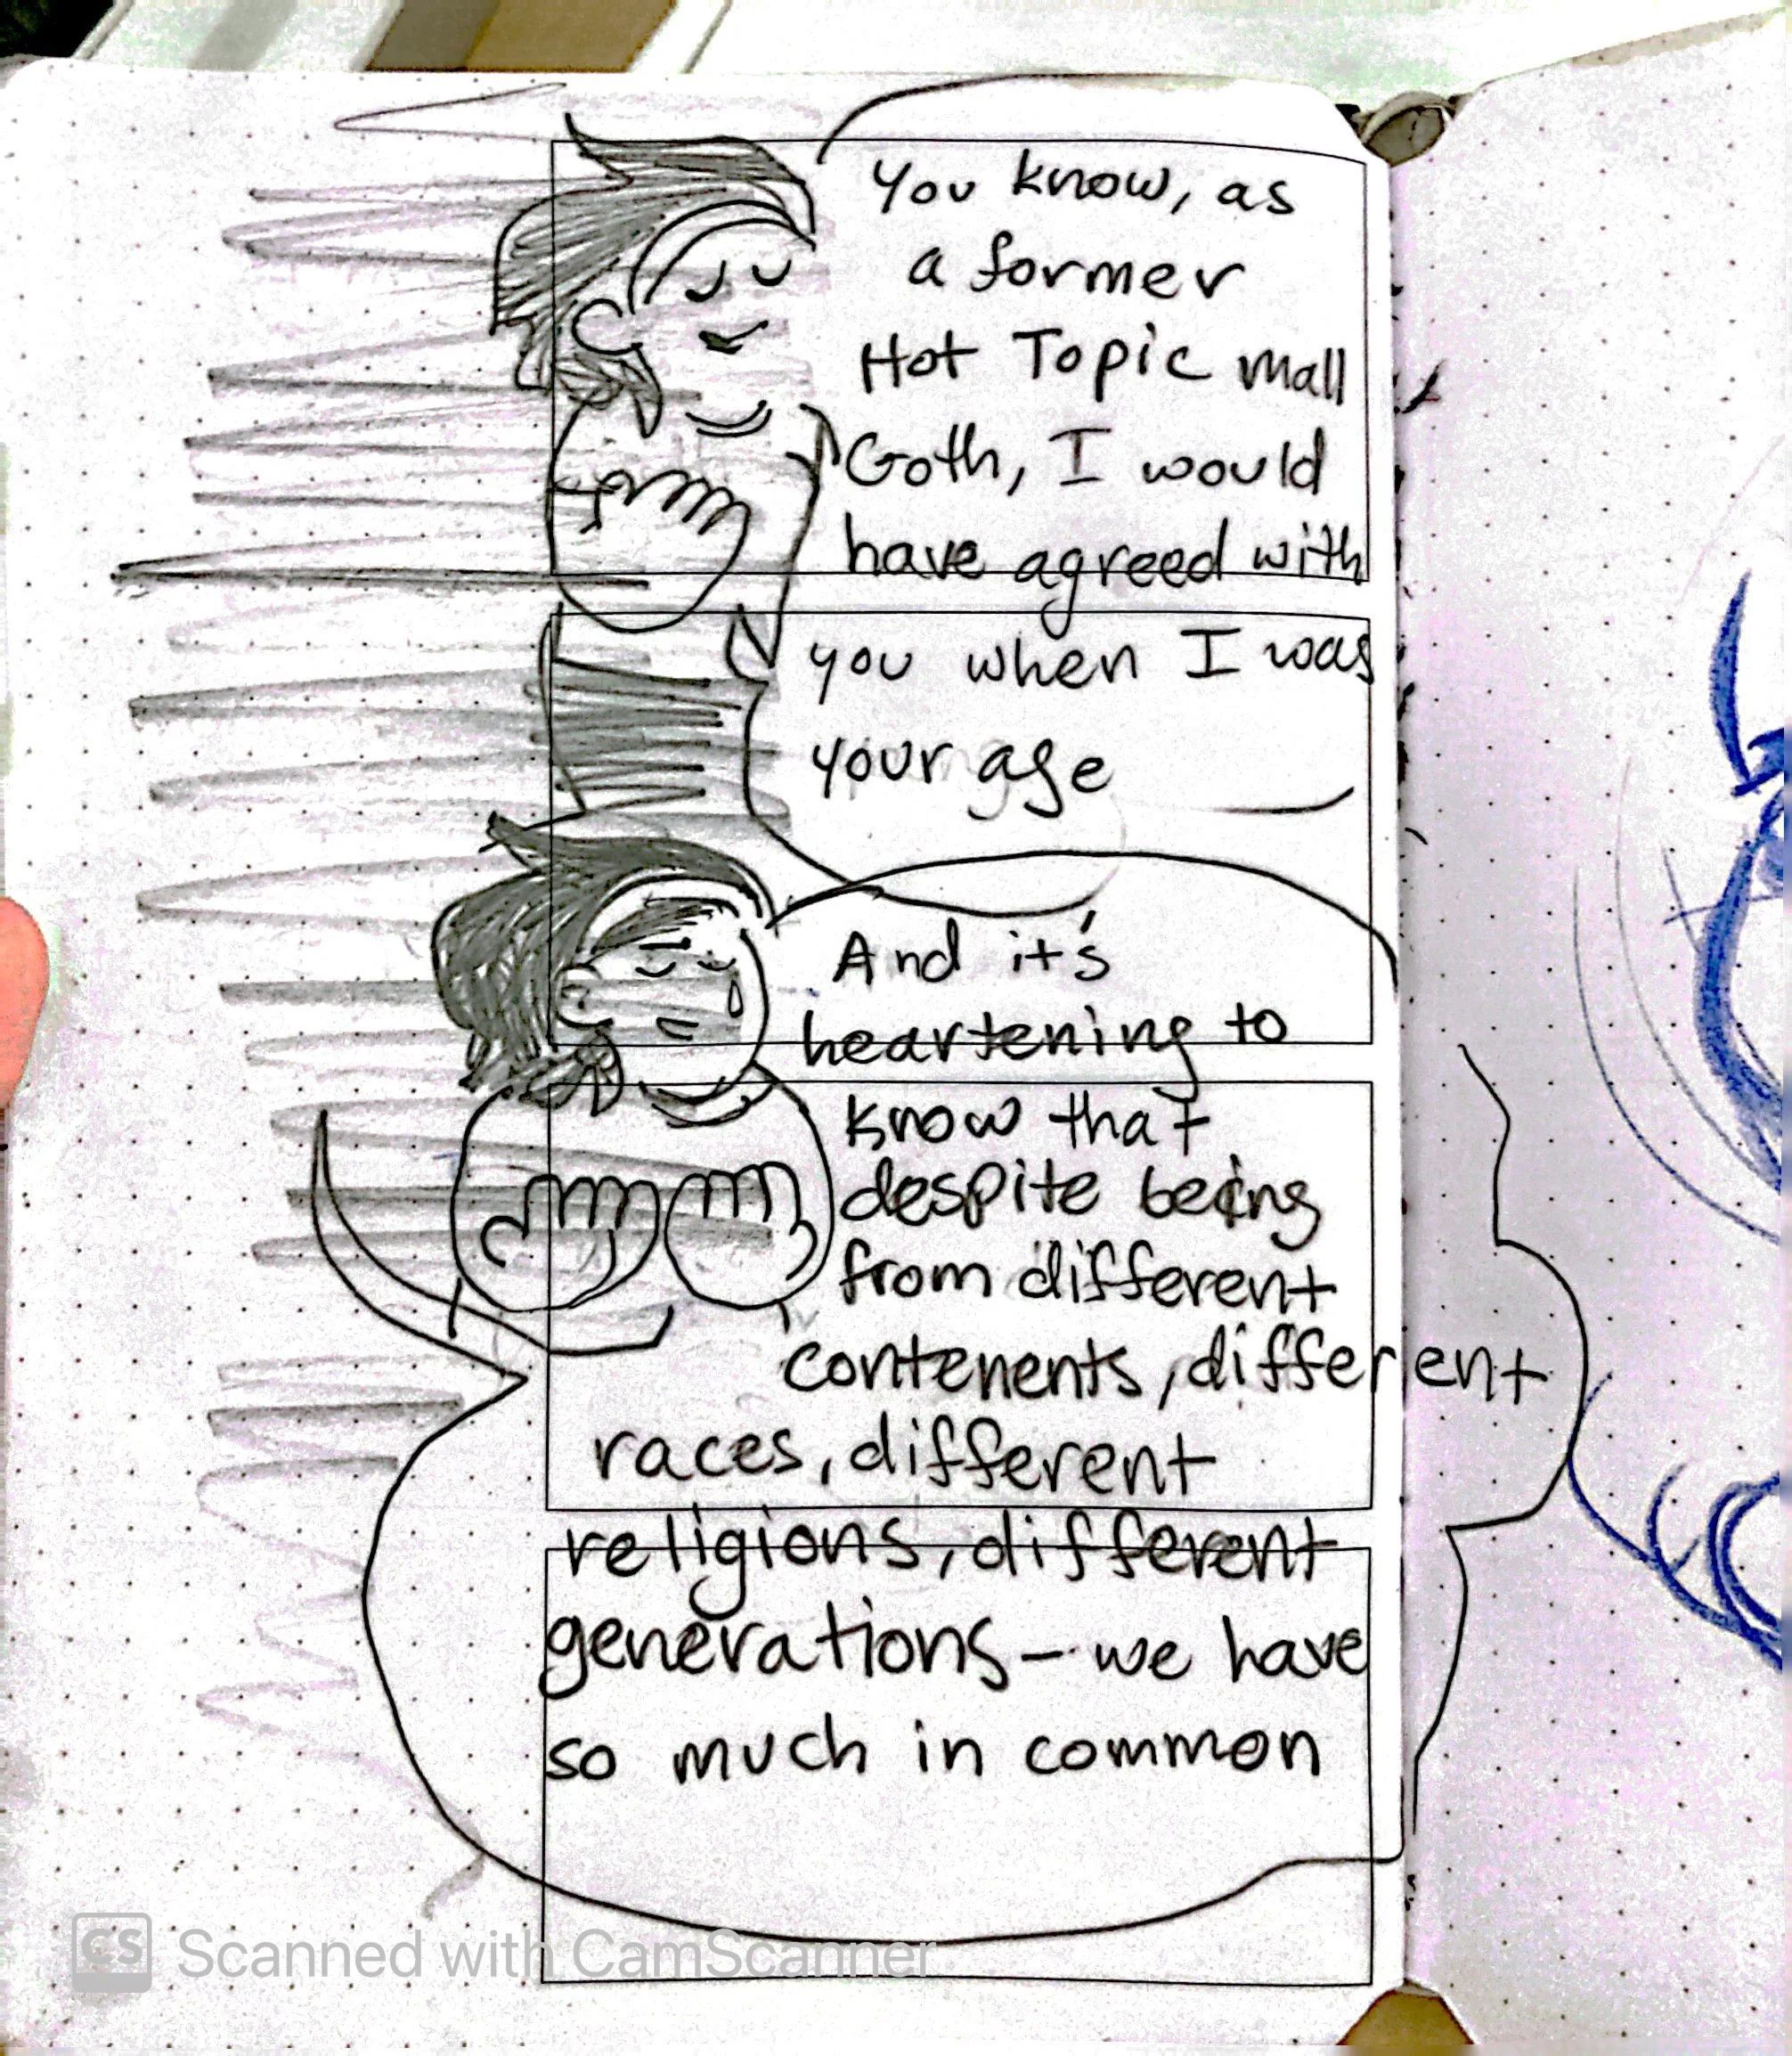 You know, as
a former
Hot Topic mall
Goth, I would
have agreed with
you when I was
your age
And it's
heartening to
know that
despite being
from different
contenents, different
races, different
religions, different
generations - we have
so much in common
CS Scanned with CamScanner